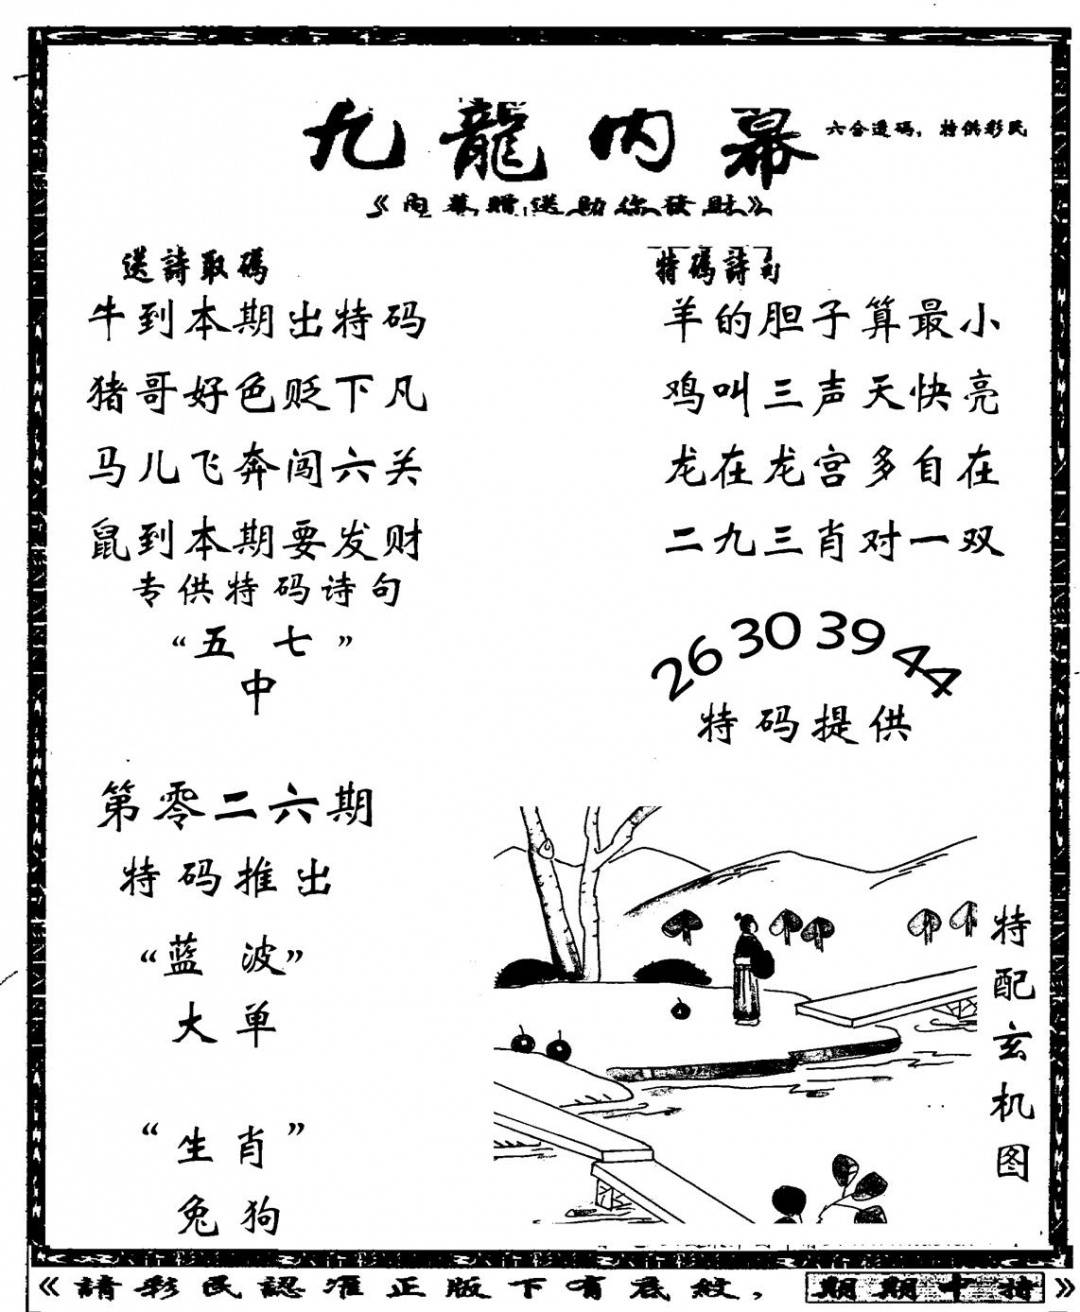 九龍内幕
六合透码，特供彩民
《内幕赠送助你發财》
送詩取碼
牛到本期出特码
猪哥好色贬下凡
马儿飞奔闯六关
鼠到本期要发财
专供特码诗句
“五 七”
中
特碼詩句
羊的胆子算最小
鸡叫三声天快亮
龙在龙宫多自在
二九三肖对一双
26 30 39 44
特码提供
第零二六期
特码推出
“蓝 波”
大单
“生肖”
兔狗
特配玄机图
《請彩民認准正版下有底紋，期期中特》